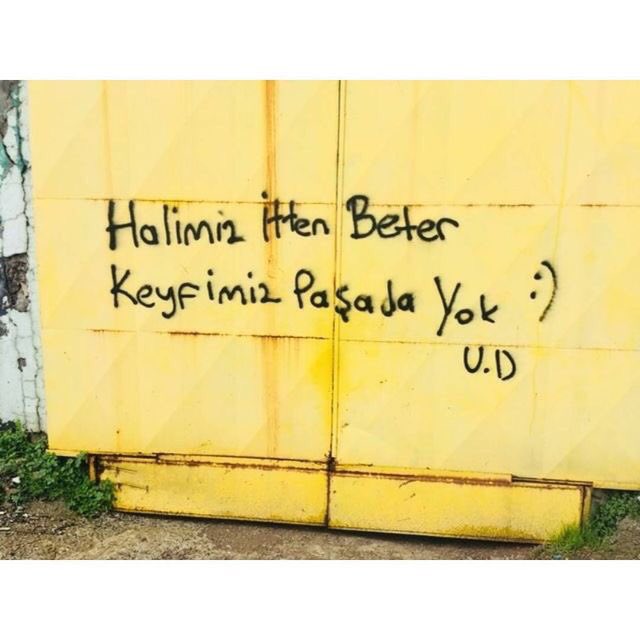 Halimiz İtten Beter
Keyfimiz Paşada Yok :)
U.D